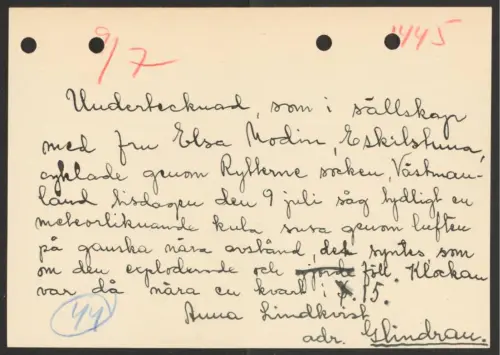 9/7
1445
Undertecknad, som i sällskap
med fru Elsa Modin, Eskilstuna,
cyklade genom Rytterne socken, Västman-
land tisdagen den 9 juli såg tydligt en
meteorliknande kula susa genom luften
på ganska nära avstånd, det syntes som
om den exploderade och föll. Klockan
var då nära en kvart i 5.
44
Anna Lindkvist
adr. Glindran.